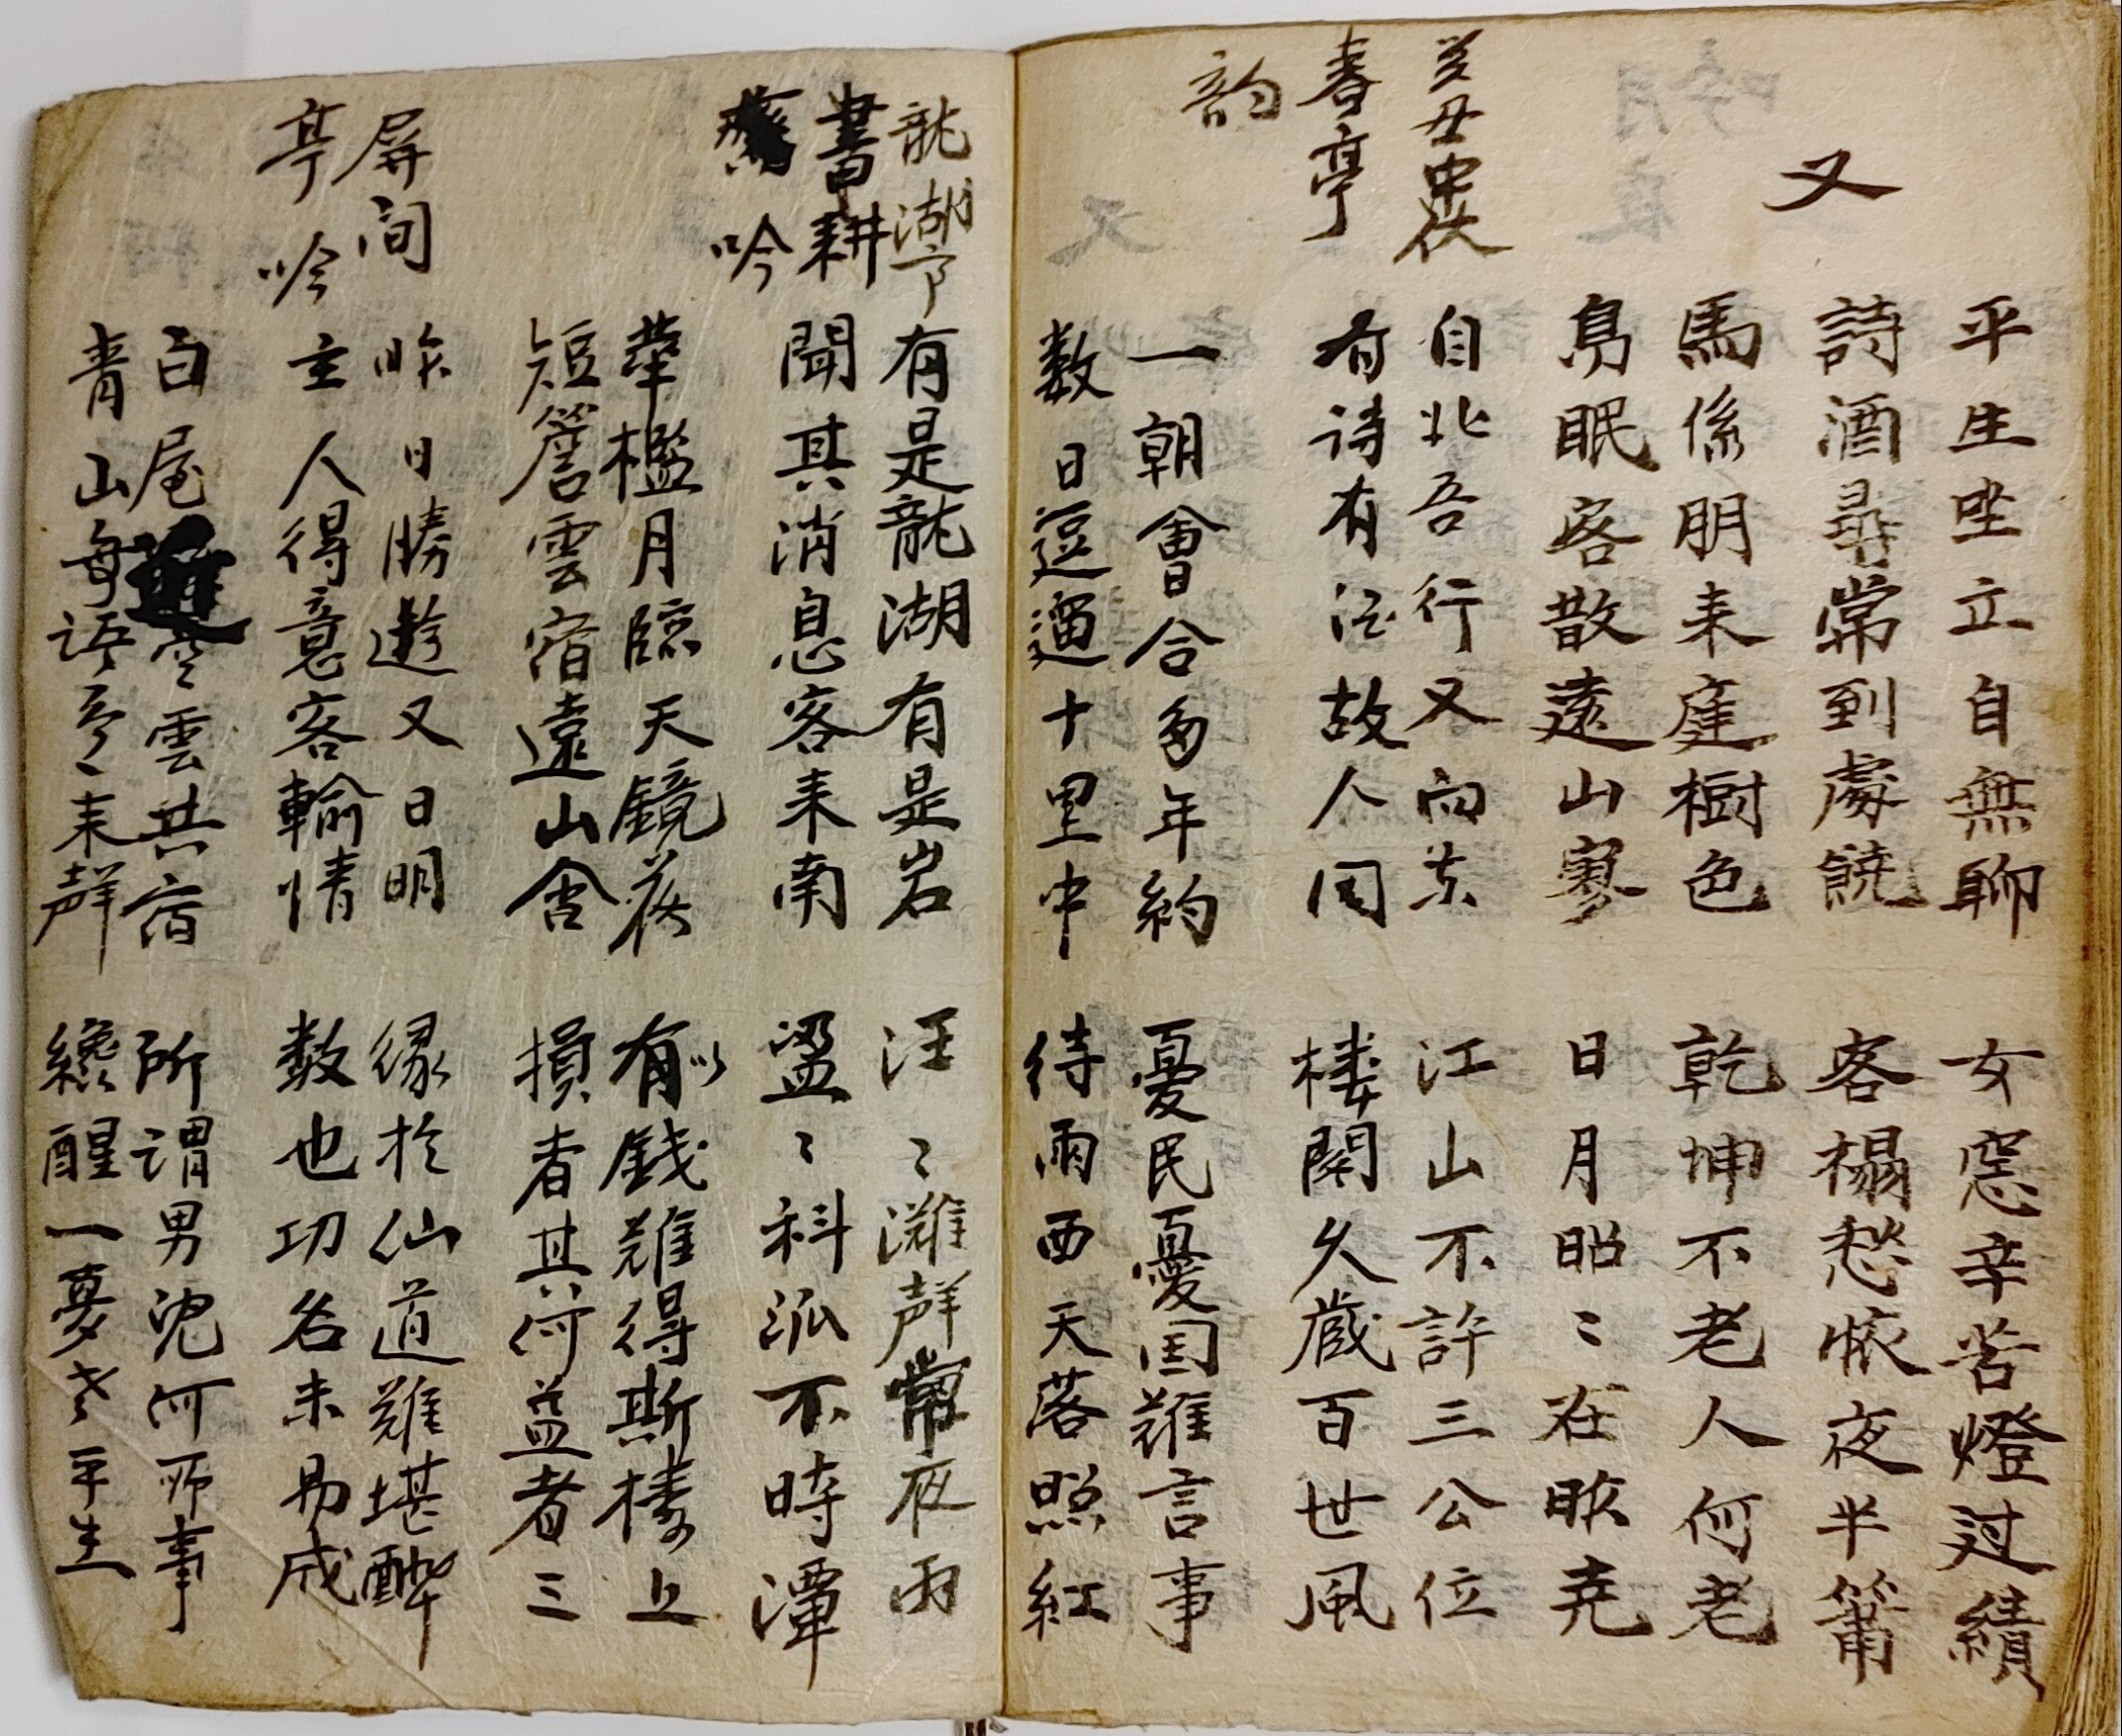 又
平生坐立自無聊
女窓辛苦燈过績
詩酒尋常到處饒
客榻愁懷夜半簫
馬係朋来庭樹色
乾坤不老人何老
鳥眠客散遠山寥
日月昭〻在昧尭
癸丑中伏
春亭
韵
自北吾行又向东
江山不許三公位
有诗有酒故人同
楼開久歲百世風
一朝會合多年約
憂民憂国难言事
数日逗遛十里中
待雨西天落照紅
龍湖亭
書耕
吟
有是龍湖有是岩
汪〻灘声常夜雨
聞其消息客来南
盈〻科泒不時潭
華檻月臨天鏡落
有錢难得斯楼上
短簷雲宿遠山含
損者其何益者三
屏间
亭吟
昨日勝遊又日明
缘於仙道难堪醉
主人得意客輸情
数也功名未易成
白屋 雲共宿
所謂男児何所事
青山每語 来声
纔醒一夢 平生